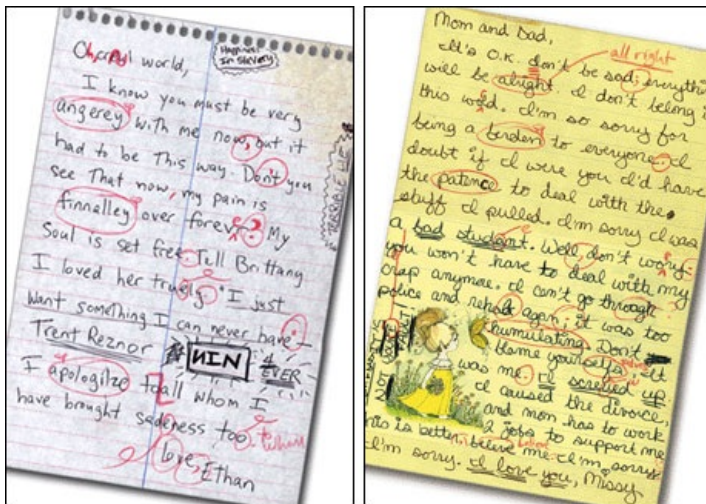 Oh, cruel world,
Happiness
In Slavery
I know you must be very
angerey with me now, but it
had to be This way. Don't you
see That now, my pain is
finnalley over forever? My
Soul is set free. Tell Brittany
I loved her truely. "I just
want something I can never have"
Trent Reznor
NIN
4 EVER
I apologitze to all whom I
have brought sadeness too.
Love, Ethan
TERRIBLE LIE
Mom and Dad,
all right
It's O.K. don't be sad; everythin
will be alright. I don't belong i
this wold. I'm so sorry for
being a berden to everyone. I
doubt if I were you I'd have
the patence to deal with the
stuff I pulled. I'm sorry I was
a bad student. Well, don't worry.
you won't have to deal with my
crap anymore. I can't go through
police and rehab agen. it was too
humulating. Don't
blame yourselfs. It
was me. I screwed up.
I caused the divorce,
and mom has to work
2 jobs to support me
this is better, beleve me. I'm sorry
I'm sorry. I love you, Missy